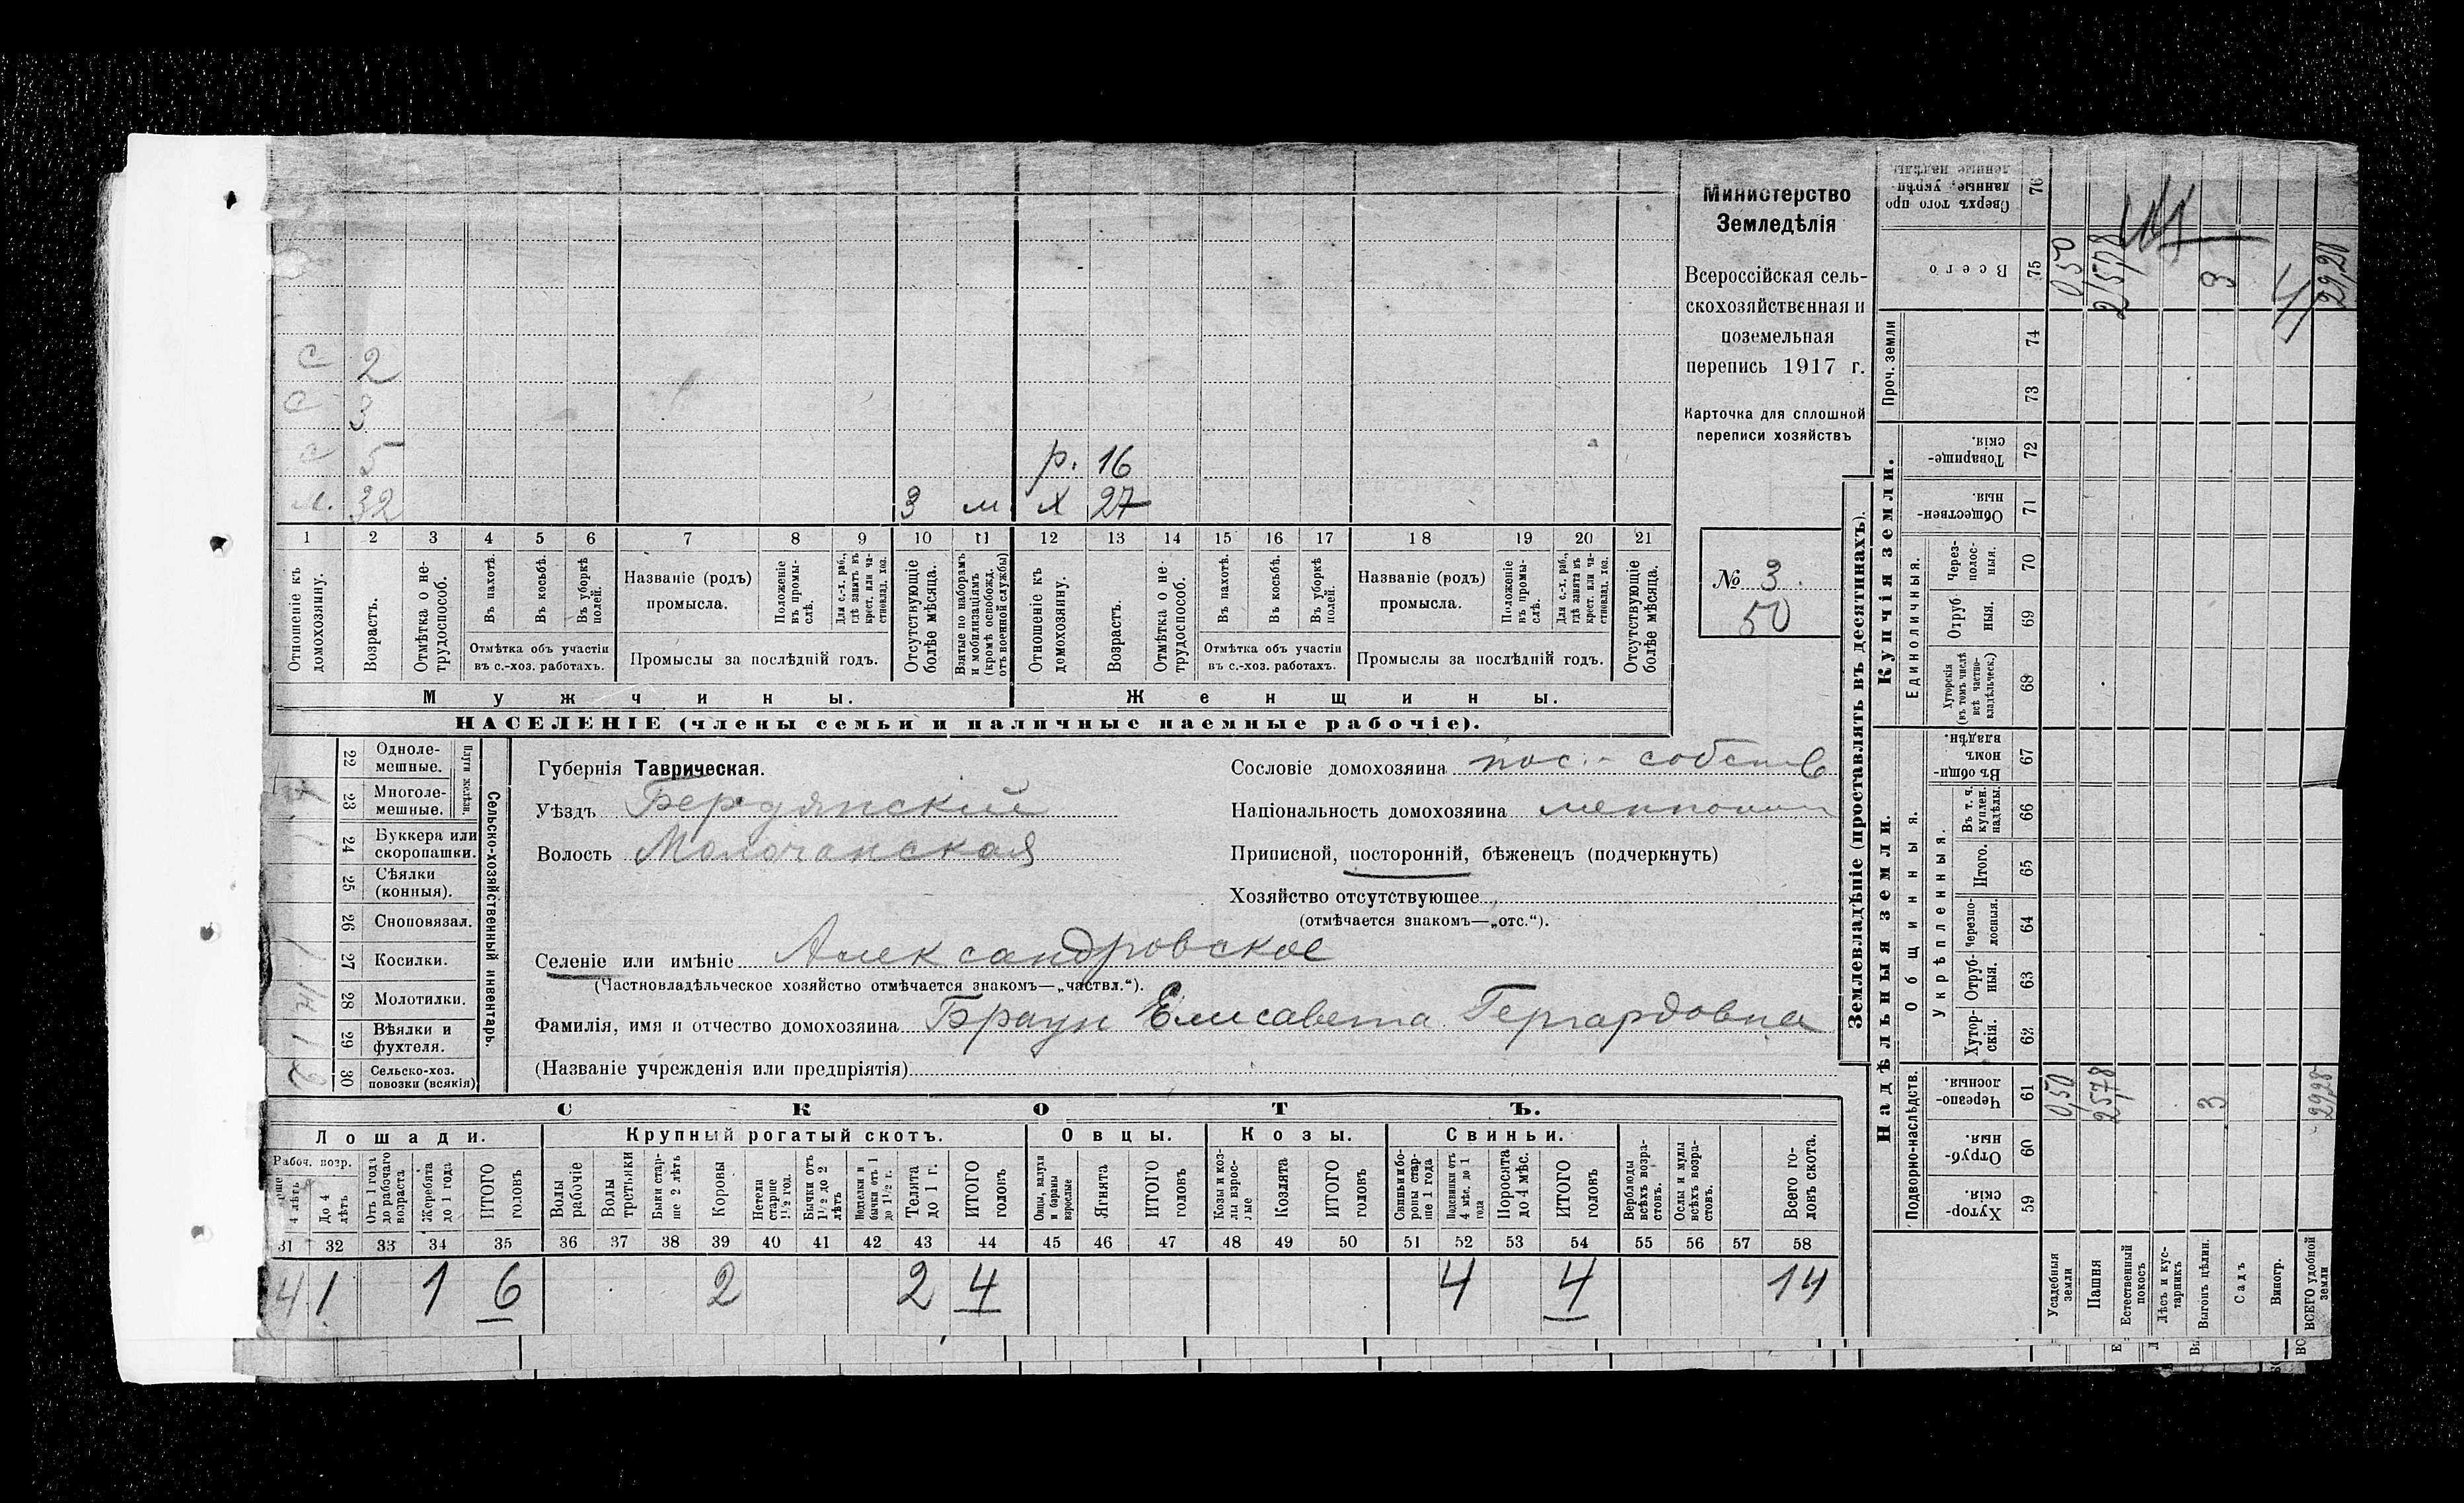 с 2
с 3
с 5 р. 16
м. 32 3 м х 27
1 2 3 4 5 6 7 8 9 10 11 12 13 14 15 16 17 18 19 20 21
Отношеніе къ домохозяину.
Возрастъ.
Отмѣтка о не-трудоспособ.
Въ пахотѣ.
Въ косьбѣ.
Въ уборкѣ полей.
Отмѣтка объ участіи въ с.-хоз. работахъ.
Названіе (родъ) промысла.
Положеніе въ промы-слѣ.
Для с.-х. раб., гдѣ занятъ въ крест. или ча-стновлад. хоз.
Промыслы за послѣдній годъ.
Отсутствующіе болѣе мѣсяца.
Взятые по наборамъ и мобилизаціямъ (кромѣ освобожд. отъ военной службы)
Отношеніе къ домохозяину.
Возрастъ.
Отмѣтка о не-трудоспособ.
Въ пахотѣ.
Въ косьбѣ.
Въ уборкѣ полей.
Отмѣтка объ участіи въ с.-хоз. работахъ.
Названіе (родъ) промысла.
Положеніе въ промы-слѣ.
Для с.-х. раб., гдѣ занята въ крест. или ча-стновлад. хоз.
Промыслы за послѣдній годъ.
Отсутствующіе болѣе мѣсяца.
Мужчины. Женщины.
НАСЕЛЕНІЕ (члены семьи и наличные наемные рабочіе).
Министерство
Земледѣлія
Всероссійская сель-
скохозяйственная и
поземельная
перепись 1917 г.
Карточка для сплошной
переписи хозяйствъ
№ 3.
50
Сельско-хозяйственный инвентарь.
Плуги желѣзн.
22 Одноле-мешные.
23 Многоле-мешные. 1
24 Буккера или скоропашки. 1
25 Сѣялки (конныя).
26 Сноповязал.
27 Косилки. 1
28 Молотилки.
29 Вѣялки и фухтеля. 1
30 Сельско-хоз. повозки (всякія) 2
Губернія Таврическая.
Уѣздъ Бердянский
Волость Молочанская
Сословіе домохозяина пос.- собств
Національность домохозяина меннонит
Приписной, посторонній, бѣженецъ (подчеркнуть)
Хозяйство отсутствующее
(отмѣчается знакомъ—„отс.“).
Селеніе или имѣніе Александровское
(Частновладѣльческое хозяйство отмѣчается знакомъ—„частвл.“).
Фамилія, имя и отчество домохозяина Браун Елисавета Гергардовна
(Названіе учрежденія или предпріятія)
СКОТЪ.
Лошади. Крупный рогатый скотъ. Овцы. Козы. Свиньи.
Рабоч. возр.
4 лѣтъ
До 4 лѣтъ
Отъ 1 года до рабочаго возраста
Жеребята до 1 года
ИТОГО головъ
Волы рабочіе
Волы третьяки
Быки стар-ше 2 лѣтъ
Коровы
Нетели старше 1½ год.
Бычки отъ 1½ до 2 лѣтъ
Нетельки и бычки отъ 1 до 1½ г.
Телята до 1 г.
ИТОГО головъ
Овцы, валухи и бараны взрослые
Ягнята
ИТОГО головъ
Козы и коз-лы взрос-лые
Козлята
ИТОГО головъ
Свиньи и бо-ровы стар-ше 1 года
Подсвинки отъ 4 мѣс. до 1 года
Поросята до 4 мѣс.
ИТОГО головъ
Верблюды всѣхъ возра-стовъ.
Ослы и мулы всѣхъ возра-стовъ.
Всего го-ловъ скота.
31 32 33 34 35 36 37 38 39 40 41 42 43 44 45 46 47 48 49 50 51 52 53 54 55 56 57 58
4 1 1 6 2 2 4 4 4 14
Землевладѣніе (проставлять въ десятинахъ).
Надѣльныя земли. Купчія земли. Проч. земли
Подворно-наслѣдств.
Общинныя.
Укрѣпленныя.
Единоличныя.
Хутор-скія. 59
Отруб-ныя. 60
Черезпо-лосныя. 61
Хутор-скія. 62
Отруб-ныя. 63
Черезпо-лосныя. 64
Итого. 65
Въ т. ч. куплен. надѣлы. 66
Въ общи-номъ владѣн. 67
Хуторскія (въ томъ числѣ всѣ частно-владѣльческ.) 68
Отруб-ныя. 69
Через-полос-ныя. 70
Обществен-ныя. 71
Товарище-скія. 72
73
74
Всего 75
Сверхъ того про-данные, укрѣп-ленные надѣлы 76
Усадебныя земли 0,50 0,50
Пашня 25,78 25,78
Естественный покосъ
Лѣсъ и кус-тарникъ
Выгонъ цѣлин. 3 3
Садъ
Виногр.
ВСЕГО удобной земли 29,28 29,28